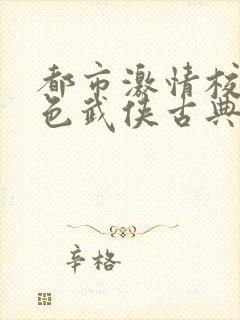 都市激情校
色武侠古典
辛格